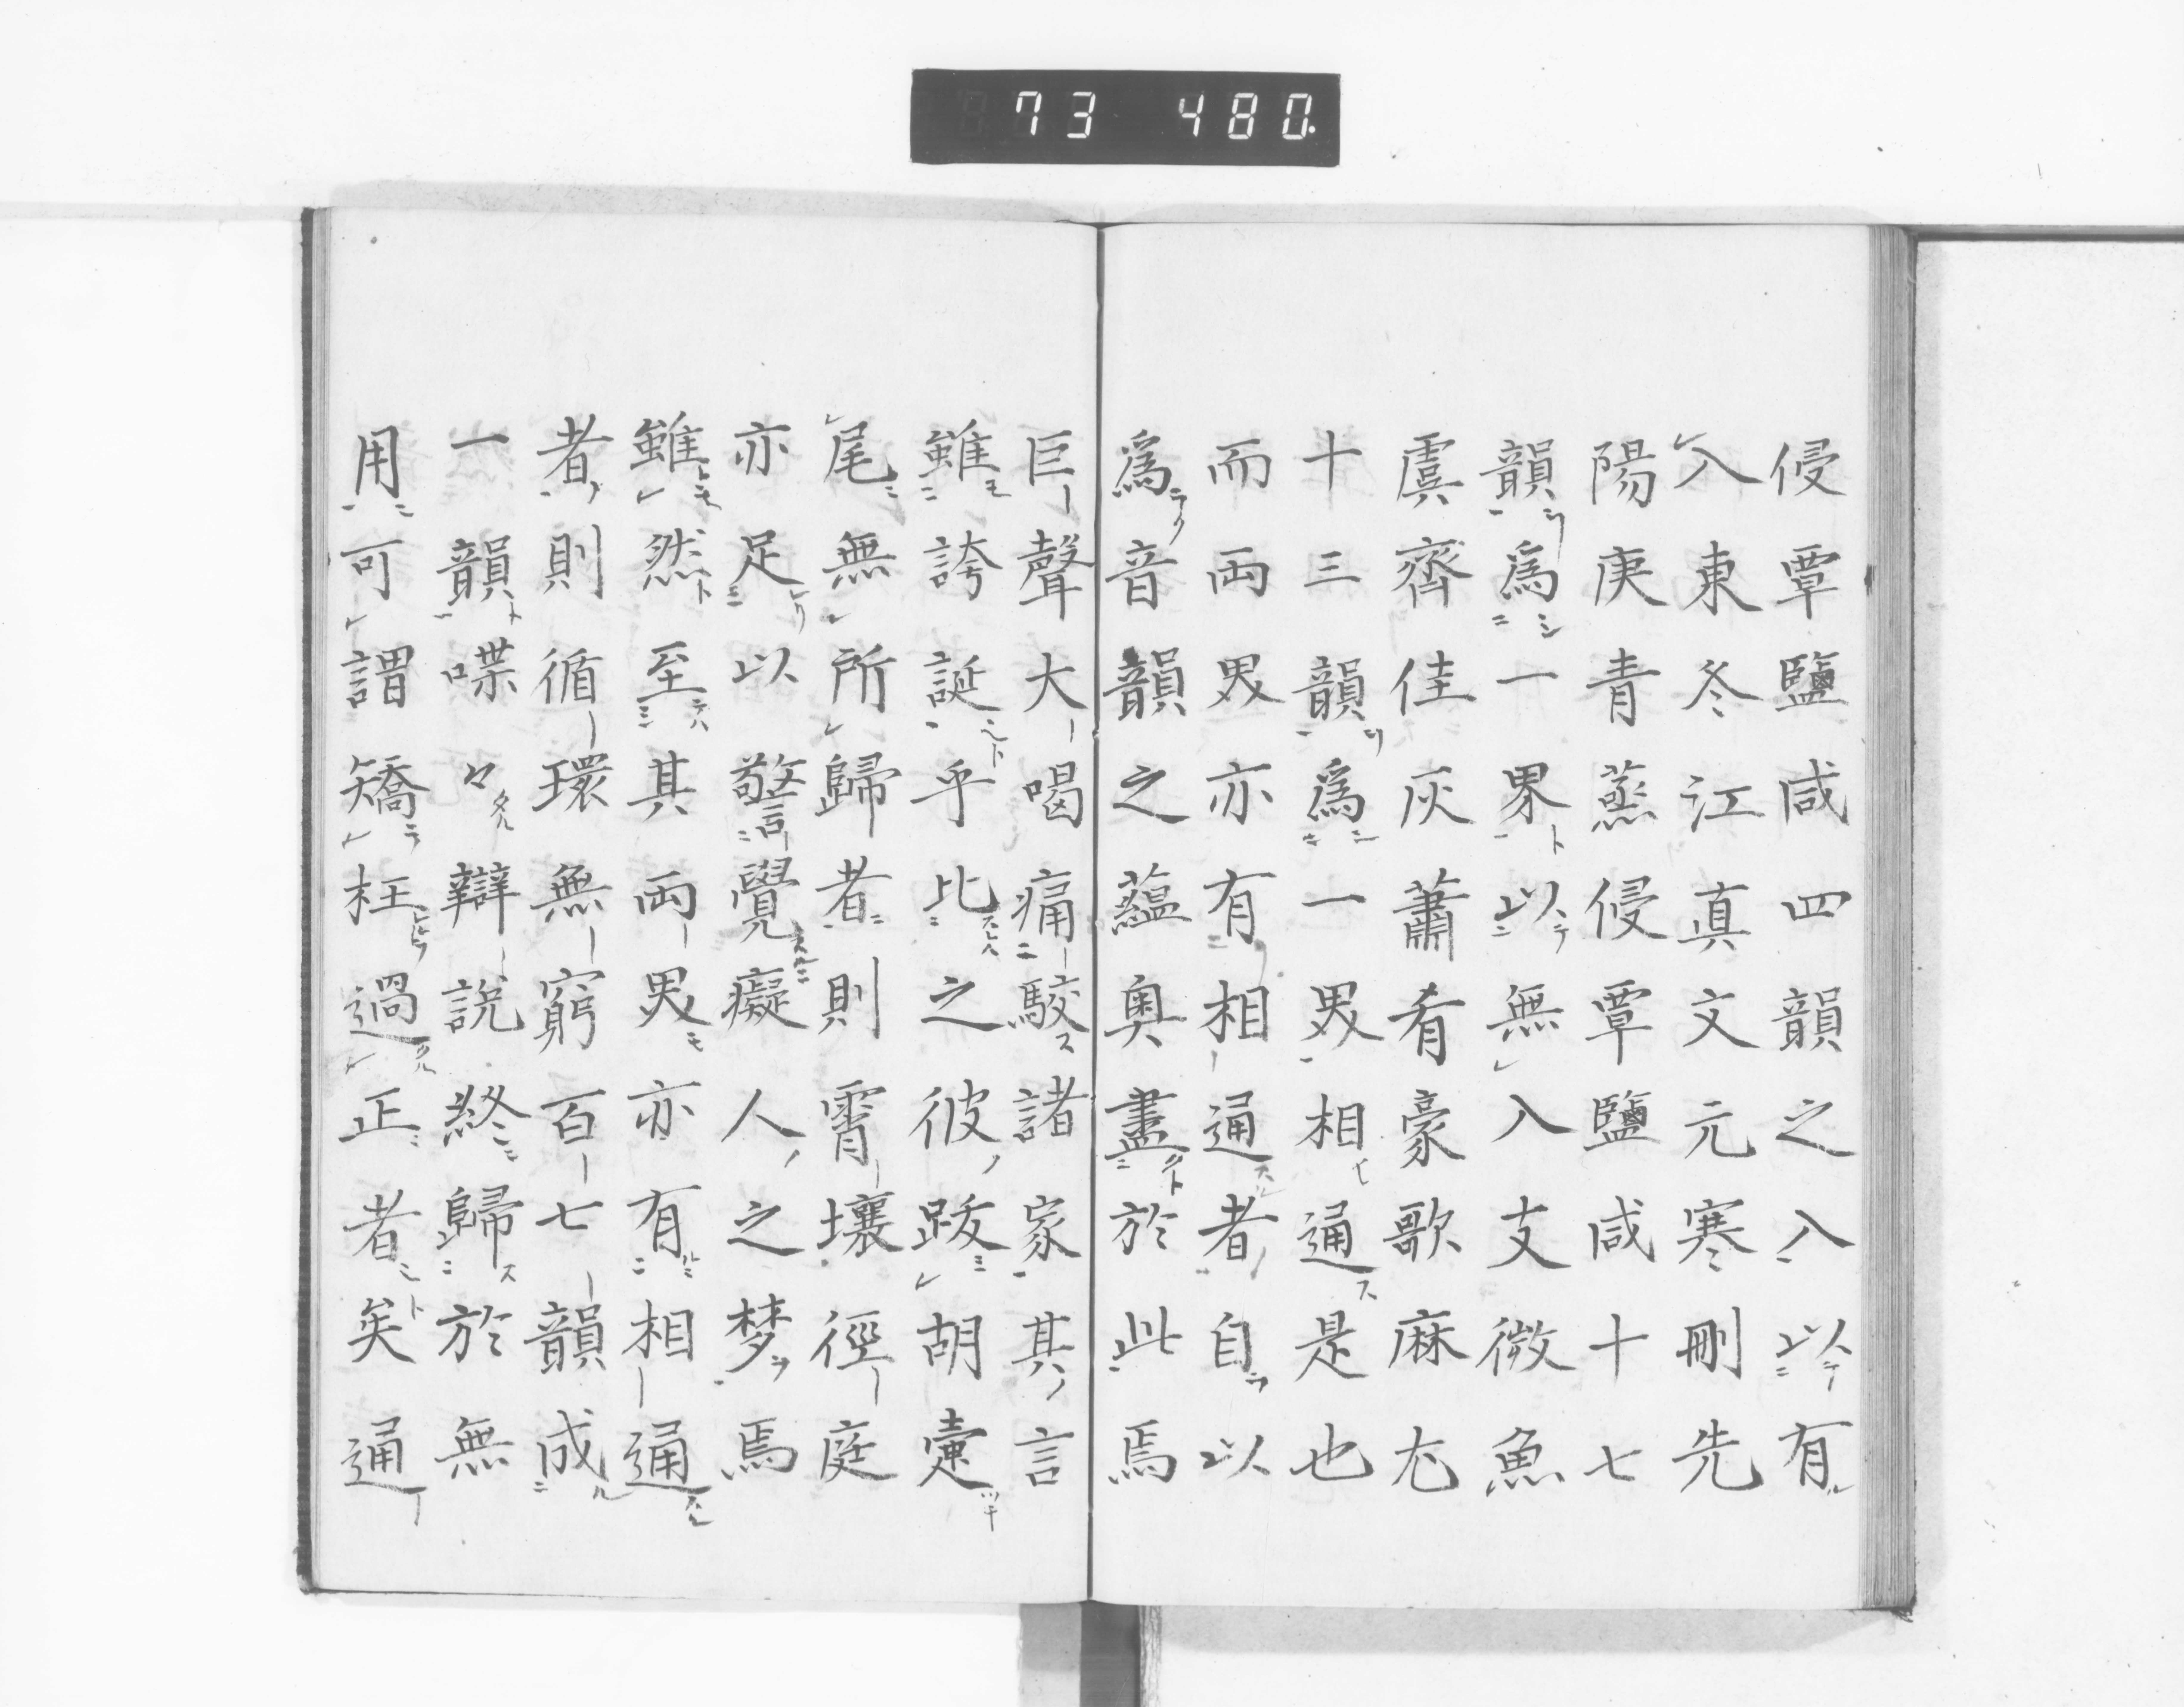 73 480.
侵覃鹽咸四韻之入以有
入東冬江真文元寒刪先
陽庚青蒸侵覃鹽咸十七
韻為一界以無入支微魚
虞齊佳灰蕭肴豪歌麻尤
十三韻為一界相通是也
而両界亦有相通者自以
為音韻之蘊奥盡於此焉
巨聲大喝痛駁諸家其言
雖誇誕乎比之彼跋胡疐
尾無所歸者則霄壤徑庭
亦足以警覺癡人之梦焉
雖然至其両界亦有相通
者則循環無窮百七韻成
一韻喋々辯説終歸於無
用可謂矯枉過正者矣通